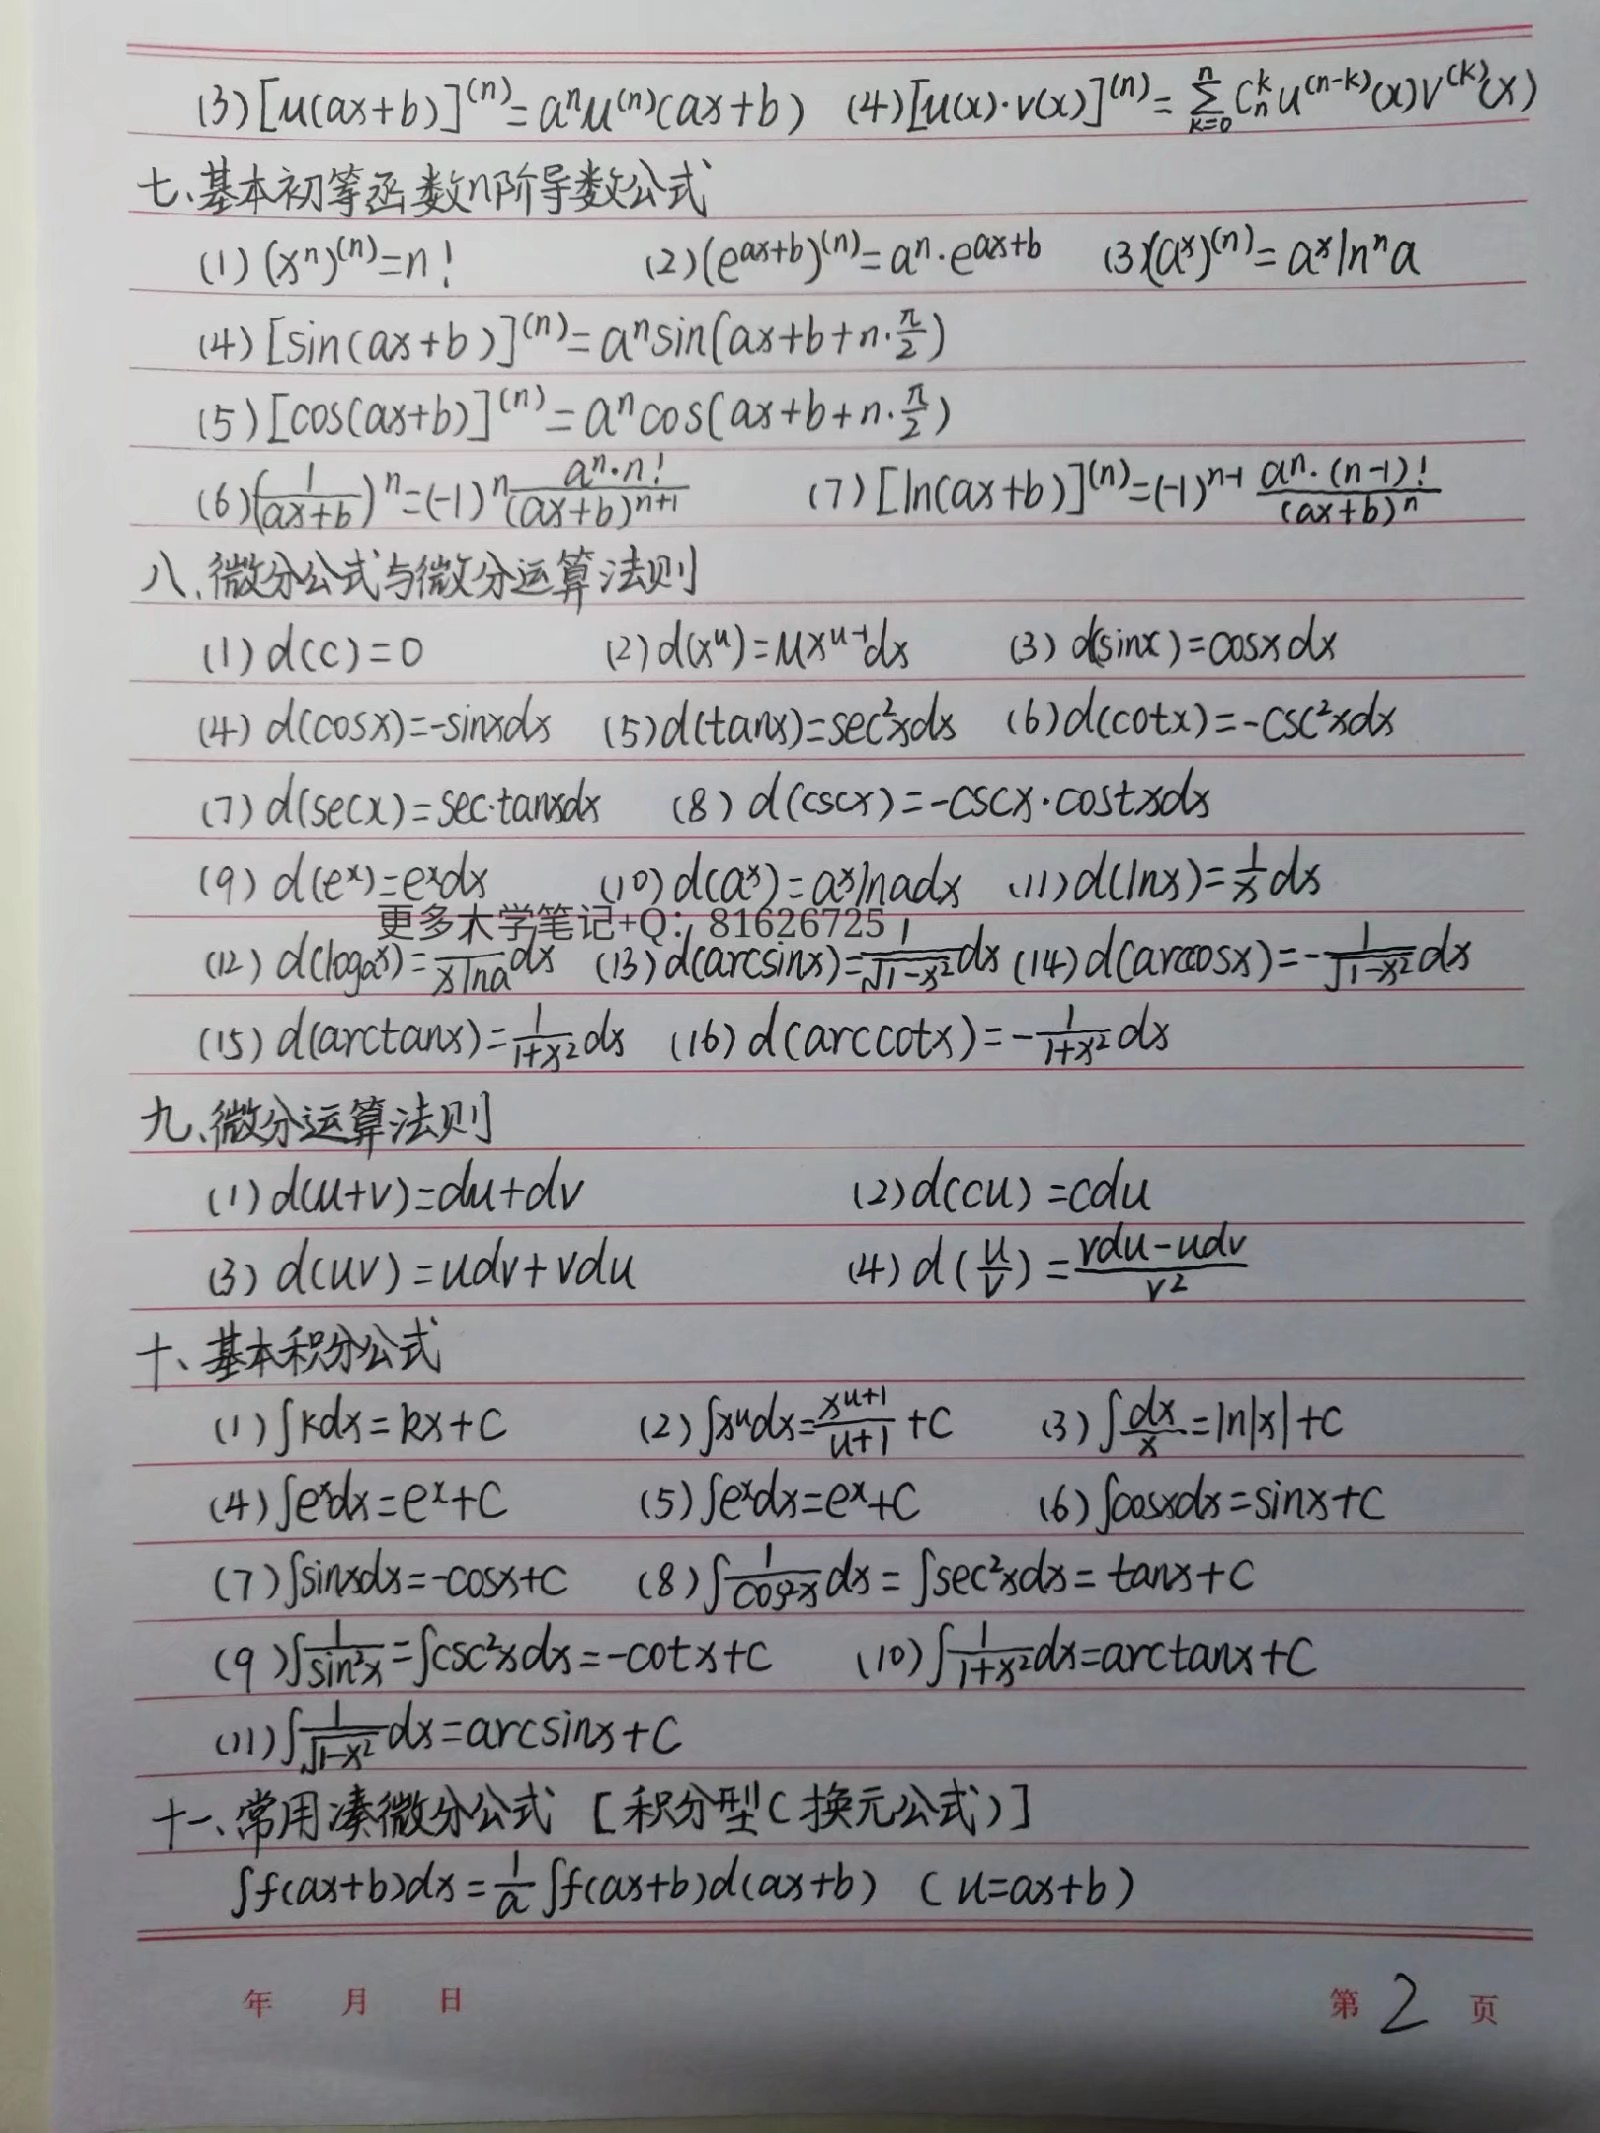 (3)[u(ax+b)]^(n)=a^n u^(n)(ax+b) (4)[u(x)·v(x)]^(n)=∑_{k=0}^{n} C_n^k u^(n-k)(x)v^(k)(x)
七、基本初等函数n阶导数公式
(1)(x^n)^(n)=n! (2)(e^{ax+b})^(n)=a^n·e^{ax+b} (3)(a^x)^(n)=a^x ln^n a
(4)[sin(ax+b)]^(n)=a^n sin(ax+b+n·π/2)
(5)[cos(ax+b)]^(n)=a^n cos(ax+b+n·π/2)
(6)(1/(ax+b))^n=(-1)^n a^n·n!/(ax+b)^{n+1} (7)[ln(ax+b)]^(n)=(-1)^{n-1} a^n·(n-1)!/(ax+b)^n
八、微分公式与微分运算法则
(1)d(c)=0 (2)d(x^u)=ux^{u-1}dx (3)d(sinx)=cosxdx
(4)d(cosx)=-sinxdx (5)d(tanx)=sec²xdx (6)d(cotx)=-csc²xdx
(7)d(secx)=sec·tanxdx (8)d(cscx)=-cscx·costxdx
(9)d(e^x)=e^xdx (10)d(a^x)=a^xlnadx (11)d(lnx)=1/x dx
更多大学笔记+Q: 81626725
(12)d(log_a^x)=1/(xlna)dx (13)d(arcsinx)=1/√(1-x²)dx (14)d(arccosx)=-1/√(1-x²)dx
(15)d(arctanx)=1/(1+x²)dx (16)d(arccotx)=-1/(1+x²)dx
九、微分运算法则
(1)d(u+v)=du+dv (2)d(cu)=cdu
(3)d(uv)=udv+vdu (4)d(u/v)=(vdu-udv)/v²
十、基本积分公式
(1)∫kdx=kx+C (2)∫x^udx=x^{u+1}/(u+1)+C (3)∫dx/x=ln|x|+C
(4)∫e^xdx=e^x+C (5)∫e^xdx=e^x+C (6)∫cosxdx=sinx+C
(7)∫sinxdx=-cosx+C (8)∫1/cos²x dx=∫sec²xdx=tanx+C
(9)∫1/sin²x=∫csc²xdx=-cotx+C (10)∫1/(1+x²)dx=arctanx+C
(11)∫1/√(1-x²)dx=arcsinx+C
十一、常用凑微分公式[积分型(换元公式)]
∫f(ax+b)dx=1/a∫f(ax+b)d(ax+b) (u=ax+b)
年 月 日 第2页